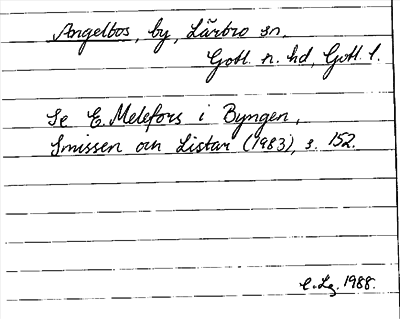 Angelbos, by, Lärbro sn,
Gotl. n. hd, Gotl. l.
Se E Melefors i Byngen,
Smissen och Listar (1983), s. 152.
C. Lg. 1988.